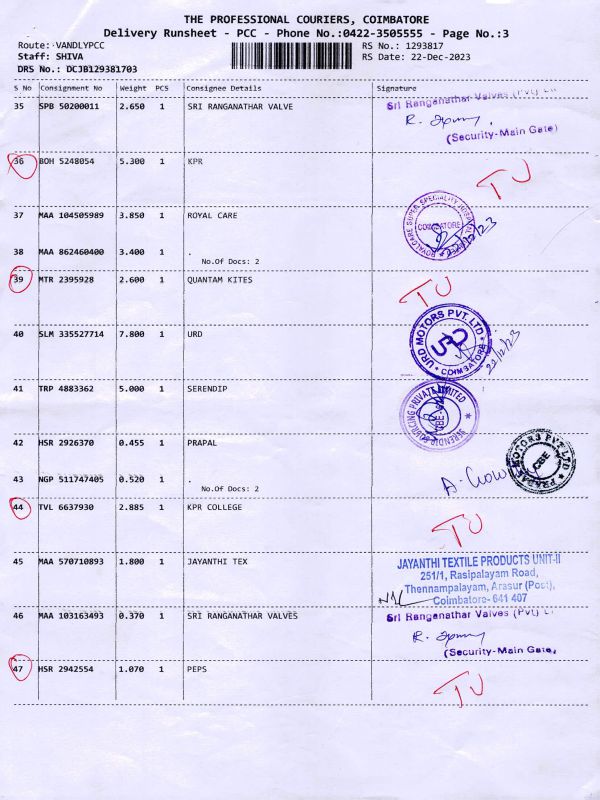 THE PROFESSIONAL COURIERS, COIMBATORE
Delivery Runsheet - PCC - Phone No.:0422-3505555 - Page No.:3
Route: VANDLYPCC RS No.: 1293817
Staff: SHIVA RS Date: 22-Dec-2023
DRS No.: DCJB129381703
S No Consignment No Weight PCS Consignee Details Signature
35 SPB 50200011 2.650 1 SRI RANGANATHAR VALVE Sri Ranganathar Valves (Pvt)
R.
(Security-Main Gate)
36 BOH 5248054 5.300 1 KPR TU
37 MAA 104505989 3.850 1 ROYAL CARE ROYALCARE SUPER SPECIALITY HOSPITAL COIMBATORE
38 MAA 862460400 3.400 1 .
No.Of Docs: 2
39 MTR 2395928 2.600 1 QUANTAM KITES TU
40 SLM 335527714 7.800 1 URD URD MOTORS PVT. LTD. URD COIMBATORE 22/12/23
41 TRP 4883362 5.000 1 SERENDIP SERENDIP SOURCING PRIVATE LIMITED
42 HSR 2926370 0.455 1 PRAPAL PRAPAL MOTORS PVT LTD CBE
43 NGP 511747405 0.520 1 .
No.Of Docs: 2
44 TVL 6637930 2.885 1 KPR COLLEGE TU
45 MAA 570710893 1.800 1 JAYANTHI TEX JAYANTHI TEXTILE PRODUCTS UNIT-II
251/1, Rasipalayam Road,
Thennampalayam, Arasur (Post),
Coimbatore- 641 407
46 MAA 103163493 0.370 1 SRI RANGANATHAR VALVES Sri Ranganathar Valves (Pvt)
R.
(Security-Main Gate)
47 HSR 2942554 1.070 1 PEPS TU